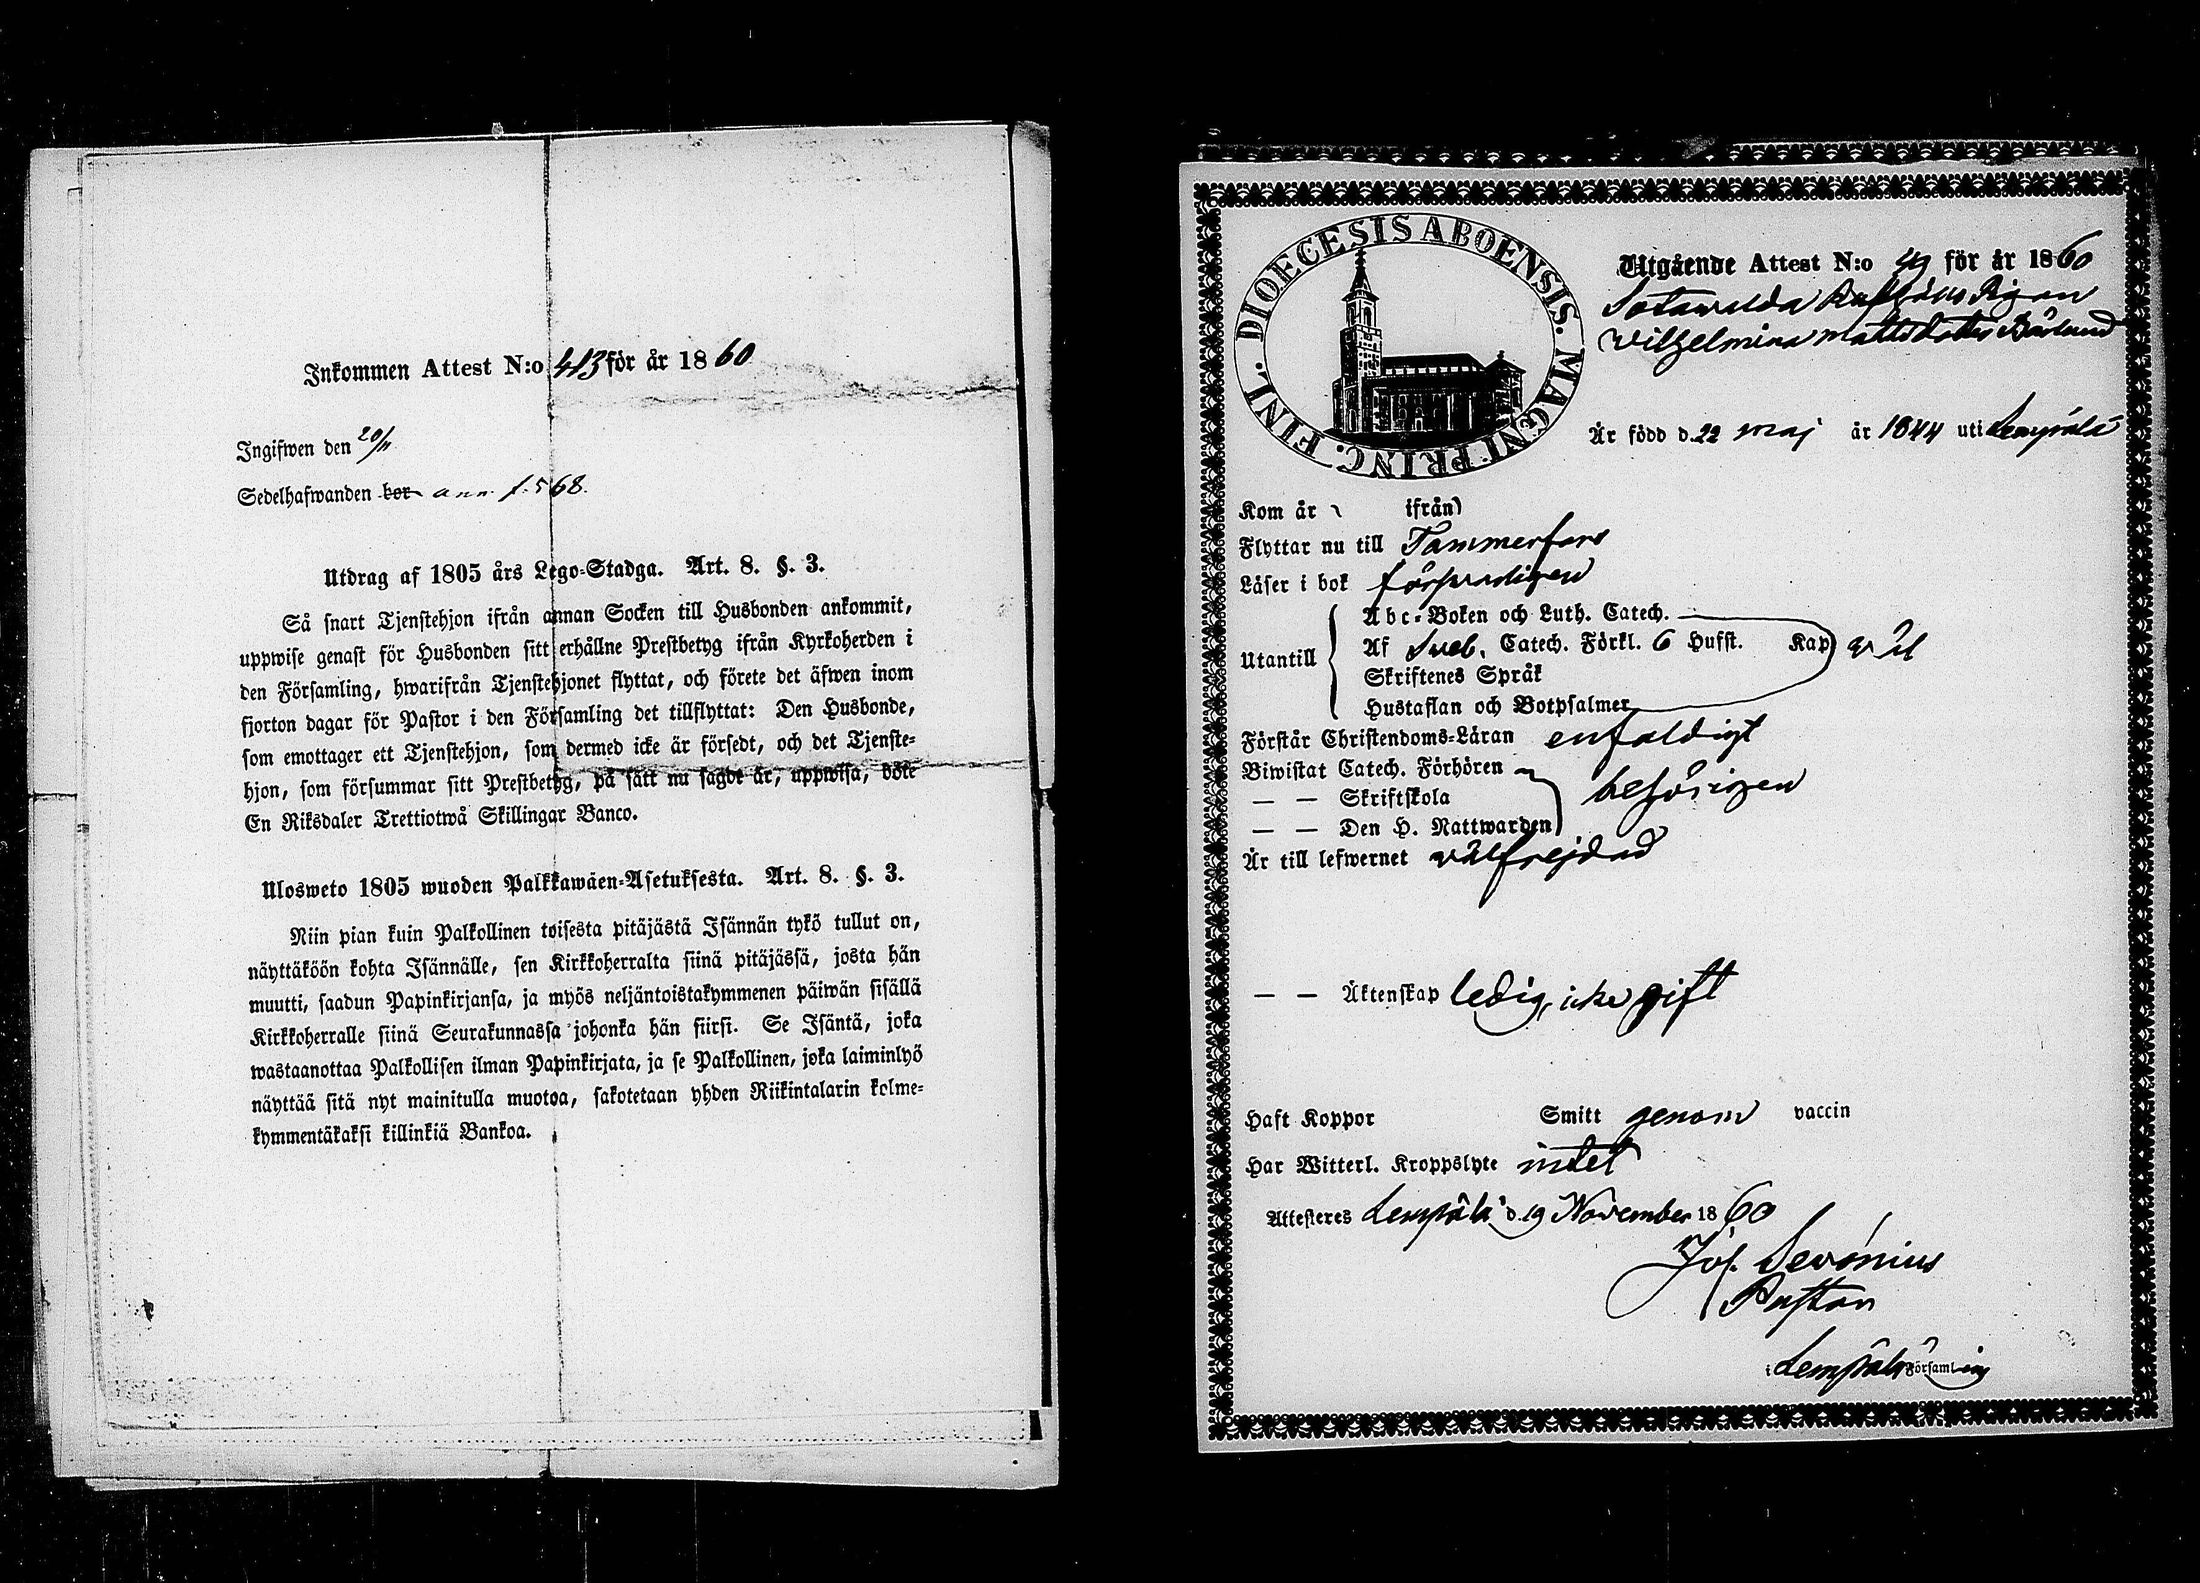 Inkommen Attest N:o 413 för år 1860
Ingifwen den 20/11
Sedelhafwanden bor ann f. 568.
Utdrag af 1805 års Lego-Stadga. Art. 8. §. 3.
Så snart Tjenstehjon ifrån annan Socken till Husbonden ankommit,
uppwise genast för Husbonden sitt erhållne Prestbetyg ifrån Kyrkoherden i
den Församling, hwarifrån Tjenstehjonet flyttat, och förete det äfwen inom
fjorton dagar för Pastor i den Församling det tillflyttat: Den Husbonde,
som emottager ett Tjenstehjon, som dermed icke är försedt, och det Tjenste-
hjon, som försummar sitt Prestbetyg, på sätt nu sagdt är, uppwisa, böte
En Riksdaler Trettiotwå Skillingar Banco.
Ulosweto 1805 wuoden Palkkawäen-Asetuksesta. Art. 8. §. 3.
Niin pian kuin Palkollinen toisesta pitäjästä Isännän tykö tullut on,
näyttäköön kohta Isännälle, sen Kirkkoherralta siinä pitäjässä, josta hän
muutti, saadun Papinkirjansa, ja myös neljäntoistakymmenen päiwän sisällä
Kirkkoherralle siinä Seurakunnassa johonka hän siirsi. Se Isäntä, joka
wastaanottaa Palkollisen ilman Papinkirjata, ja se Palkollinen, joka laiminlyö
näyttää sitä nyt mainitulla muotoa, sakotetaan yhden Riikintalarin kolme-
kymmentäkaksi killinkiä Bankoa.
DIOECESIS ABOENSIS. MAGNI PRINC. FINL.
Utgående Attest N:o 49 för år 1860
Pigan
Wilhelmina Mattsdotter
Är född d. 22 Maj år 1844 uti Lempälä
Kom år ifrån
Flyttar nu till Tammerfors
Läser i bok försvarligen
Utantill
Abc-Boken och Luth. Catech.
Af Sveb. Catech. Förkl. 6 Hufst. Kap väl
Skriftenes Språk
Hustaflan och Botpsalmer
Förstår Christendoms-Läran enfaldigt
Biwistat Catech. Förhören
— — Skriftskola behörigen
— — Den H. Nattwarden
Är till lefwernet välfrejdad
— — Äktenskap ledig, icke gift
Haft Koppor Smitt genom vaccin
Har Witterl. Kroppslyte intet
Attesteres Lempälä d. 19 November 1860
Jos. Severinius
Pastor
i Lempälä Församling